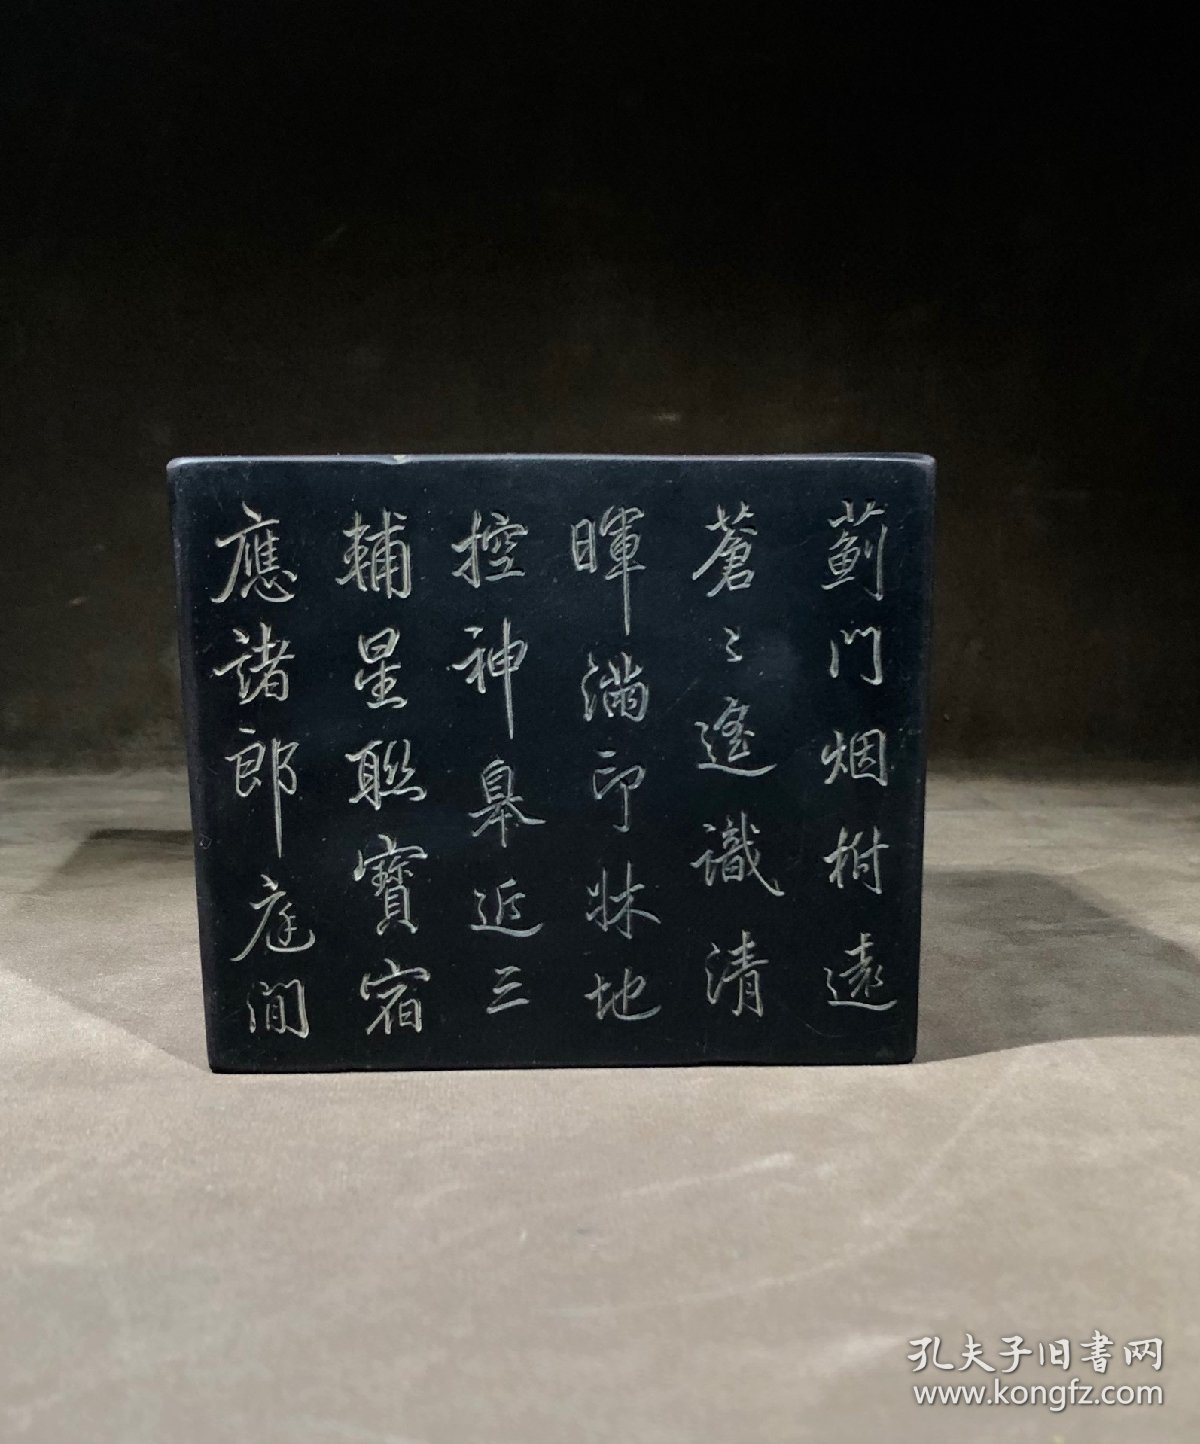 薊門烟樹遠
蒼〻遙識清
暉滿印牀地
控神皋近三
輔星聯寶宿
應諸郎庭間
孔夫子旧書网
www.kongfz.com